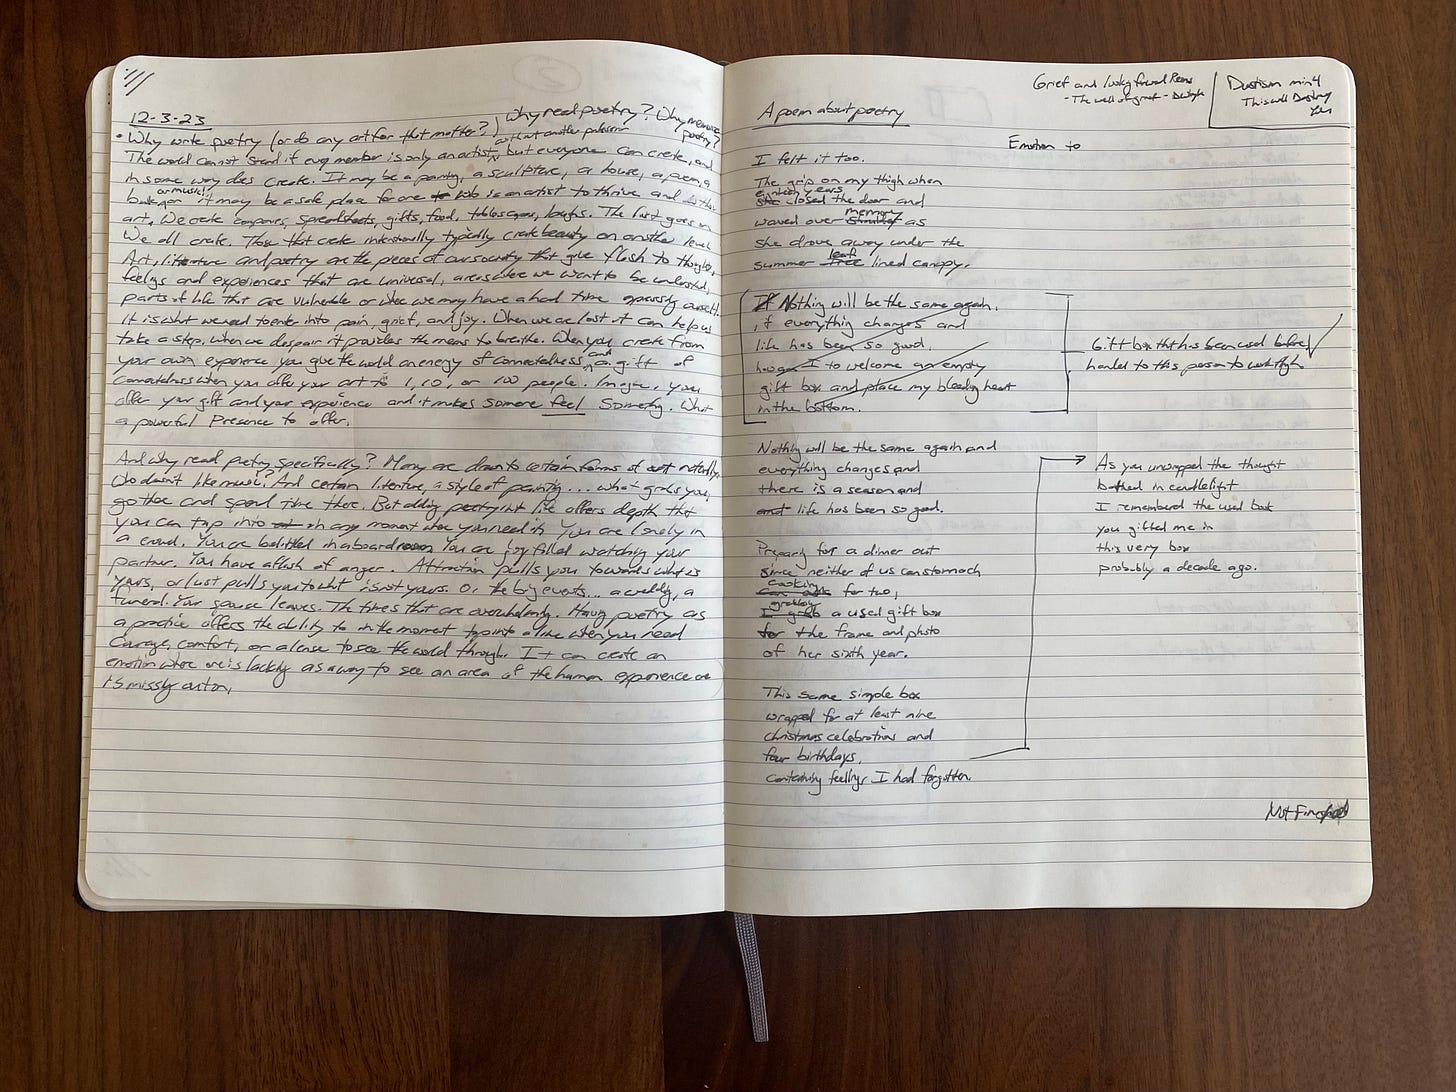 12-3-23
Why read poetry? Why memorize poetry?
• Why write poetry (or do any art for that matter?)
without another profession
The world cannot stand if every member is only an artist, but everyone can create, and
in some way does create. It may be a painting, a sculpture, a house, a poem, a
or music!
it may be a safe place for one to who is an artist to thrive and is that
art. We create companies, spreadsheets, gifts, food, tablescapes, laughs. The list goes on
We all create. Those that create intentionally typically create beauty on another level
Art, literature and poetry are the pieces of our society that give flesh to thoughts,
feelings and experiences that are universal, areas where we want to be understood,
parts of life that are vulnerable or where we may have a hard time expressing ourself.
It is what we need to enter into pain, grief, and joy. When we are lost it can help us
take a step, when we despair it provides the means to breathe. When you create from
your own experience you give the world an energy of connectedness and a gift of
connectedness when you offer your art to 1, 10, or 100 people. Imagine, you
offer your gift and your experience and it makes someone feel something. What
a powerful presence to offer.
And why read poetry specifically? Many are drawn to certain forms of art naturally.
Who doesn't like music? And certain literature, a style of painting... what grabs you,
go there and spend time there. But adding poetry into life offers depth that
you can tap into in any moment when you need it. You are lonely in
a crowd. You are belittled in a boardroom. You are joy filled watching your
partner. You have a flash of anger. Attraction pulls you towards what is
yours, or lust pulls you to what is not yours. Or the big events... a wedding, a
funeral. Your spouse leaves. The times that are overwhelming. Having poetry as
a practice offers the ability to in the moment tap into a line when you need
courage, comfort, or a lense to see the world through. It can create an
emotion where one is lacking as a way to see an area of the human experience one
is missing out on.
Grief and looking forward Poems
- The well of grief - Whyte
Dualism mind
This will Destroy
You
A poem about poetry
Emotion to
I felt it too.
The grip on my thigh when
years
she closed the door and
memory
waved over shoulder as
she drove away under the
leaf
summer tree lined canopy.
If Nothing will be the same again,
if everything changes and
life has been so good,
how am I to welcome an empty
gift box and place my bloody heart
in the bottom.
Gift box that has been used before
handed to this person to work through
Nothing will be the same again and
everything changes and
there is a season and
and life has been so good.
Preparing for a dinner out
since neither of us can stomach
cooking
for two,
grabbing
I grab a used gift box
for the frame and photo
of her sixth year.
This same simple box
wrapped for at least nine
christmas celebrations and
four birthdays,
containing feelings I had forgotten.
As you unwrapped the thought
bathed in candlelight
I remembered the used book
you gifted me in
this very box
probably a decade ago.
Not Finished